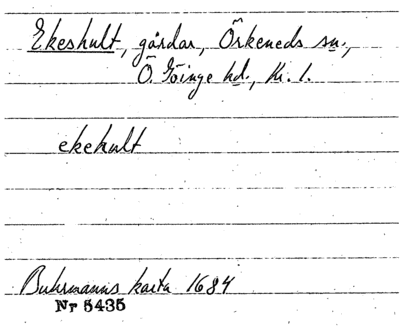 Ekeshult, gårdar, Örkeneds sn.,
Ö. Göinge hd., Kr. l.
ekehult
Buhrmanns karta 1684
Nr 5435